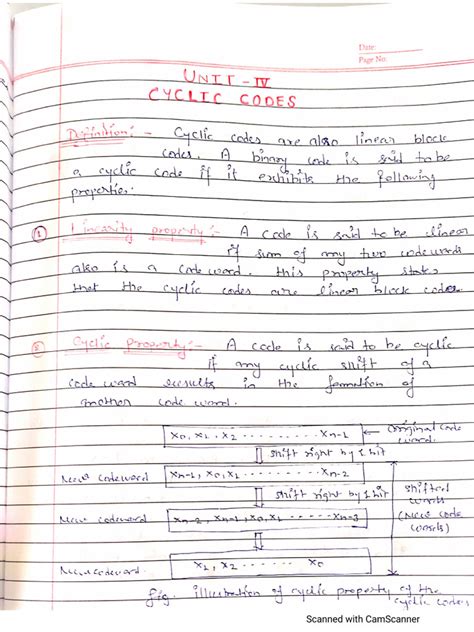 Date:
Page No.
UNIT - IV
CYCLIC CODES
Definition: - Cyclic codes are also linear block
codes. A binary code is said to be
a cyclic code if it exhibits the following
properties:
① Linearity property:- A code is said to be linear
if sum of any two codewords
also is a code word. this property states
that the cyclic codes are linear block codes.
② Cyclic Property:- A code is said to be cyclic
if any cyclic shift of a
code word results in the formation of
another code word.
x0, x1, x2 ............ xn-1 ← original code word.
shift right by 1 bit
New codeword xn-1, x0, x1 ............ xn-2
shift right by 1 bit
shifted words (New code words)
New codeword xn-2, xn-1, x0, x1 ...... xn-3
New codeword. x1, x2 ............ x0
fig. illustration of cyclic property of the
cyclic codes
Scanned with CamScanner